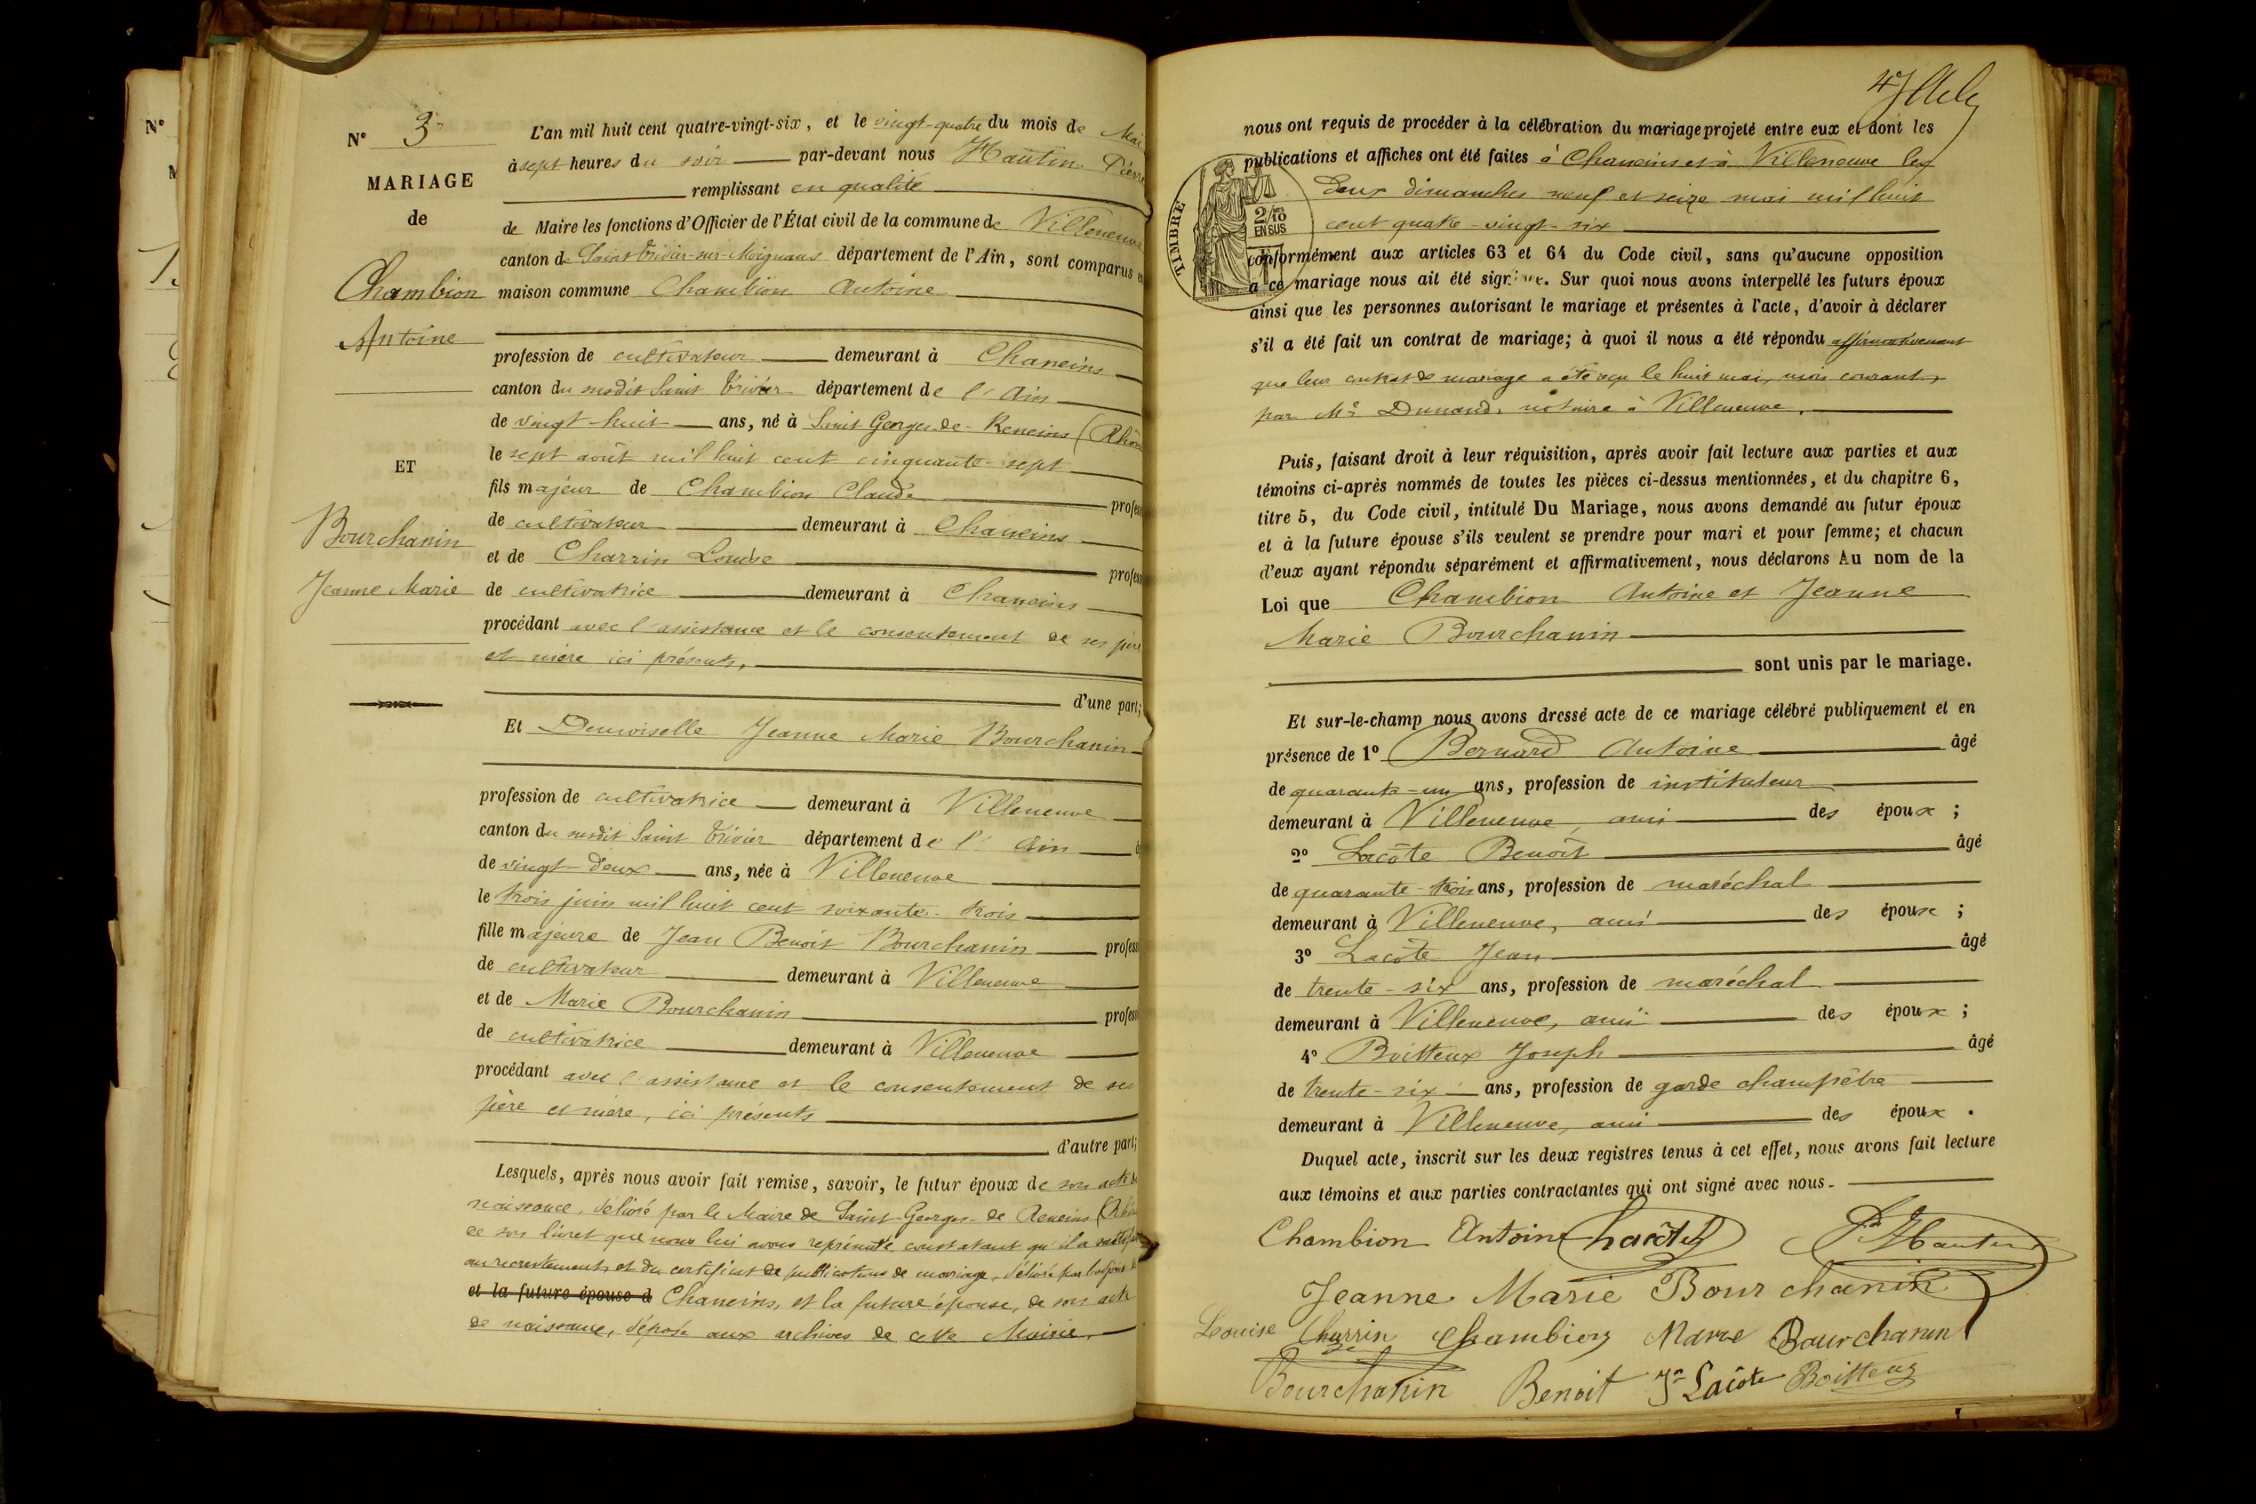 N°
M
N° 3
MARIAGE
de
Chambion
Antoine
ET
Bourchanin
Jeanne Marie
L'an mil huit cent quatre-vingt-six, et le vingt-quatre du mois de Mai
à sept heures du soir par-devant nous Hautin Pierre
remplissant en qualité
de Maire les fonctions d'Officier de l'État civil de la commune de Villeneuve
canton de Saint Trivier-sur-Moignans département de l'Ain, sont comparus en
maison commune Chambion Antoine
profession de cultivateur demeurant à Chaneins
canton du susdit Saint Trivier département de l'Ain
de vingt-huit ans, né à Saint Georges-de-Reneins (Rhône
le sept août mil huit cent cinquante-sept
fils majeur de Chambion Claude profes
de cultivateur demeurant à Chaneins
et de Charrin Louise profes
de cultivatrice demeurant à Chaneins
procédant avec l'assistance et le consentement de ses père
et mère ici présents,
d'une part;
Et Demoiselle Jeanne Marie Bourchanin
profession de cultivatrice demeurant à Villeneuve
canton du susdit Saint Trivier département de l'Ain
de vingt-deux ans, née à Villeneuve
le trois juin mil huit cent soixante-trois
fille majeure de Jean Benoit Bourchanin profess
de cultivateur demeurant à Villeneuve
et de Marie Bourchanin profess
de cultivatrice demeurant à Villeneuve
procédant avec l'assistance et le consentement de ses
père et mère, ici présents
d'autre part;
Lesquels, après nous avoir fait remise, savoir, le futur époux de son acte de
naissance, délivré par le Maire de Saint-Georges-de Reneins
de son livret que nous lui avons représenté constatant qu'il a satisfait
au recrutement, et du certificat de publications de mariage, délivré par
et la future épouse d Chaneins, et la future épouse, de son acte
de naissance, déposé aux archives de cette Mairie,
47
nous ont requis de procéder à la célébration du mariage projeté entre eux et dont les
publications et affiches ont été faites à Chaneins et à Villeneuve les
deux dimanches neuf et seize mai mil huit
cent quatre-vingt-six
TIMBRE
2/10
EN SUS
conformément aux articles 63 et 64 du Code civil, sans qu'aucune opposition
à ce mariage nous ait été signifiée. Sur quoi nous avons interpellé les futurs époux
ainsi que les personnes autorisant le mariage et présentes à l'acte, d'avoir à déclarer
s'il a été fait un contrat de mariage; à quoi il nous a été répondu affirmativement
que leur contrat de mariage a été reçu le huit mai, mois courant,
par Me Dunand, notaire à Villeneuve.
Puis, faisant droit à leur réquisition, après avoir fait lecture aux parties et aux
témoins ci-après nommés de toutes les pièces ci-dessus mentionnées, et du chapitre 6,
titre 5, du Code civil, intitulé Du Mariage, nous avons demandé au futur époux
et à la future épouse s'ils veulent se prendre pour mari et pour femme; et chacun
d'eux ayant répondu séparément et affirmativement, nous déclarons Au nom de la
Loi que Chambion Antoine et Jeanne
Marie Bourchanin
sont unis par le mariage.
Et sur-le-champ nous avons dressé acte de ce mariage célébré publiquement et en
présence de 1° Bernard Antoine âgé
de quarante-un ans, profession de instituteur
demeurant à Villeneuve, ami des époux;
2° Lacôte Benoît âgé
de quarante-trois ans, profession de maréchal
demeurant à Villeneuve, ami des époux;
3° Lacôte Jean âgé
de trente-six ans, profession de maréchal
demeurant à Villeneuve, ami des époux;
4° Boitteux Joseph âgé
de trente-six ans, profession de garde champêtre
demeurant à Villeneuve, ami des époux.
Duquel acte, inscrit sur les deux registres tenus à cet effet, nous avons fait lecture
aux témoins et aux parties contractantes qui ont signé avec nous.
Chambion Antoine Lacôte Hautin
Jeanne Marie Bourchanin
Louise Charrin Chambion Marie Bourchanin
Bourchanin Benoit Jn Lacôte Boitteux